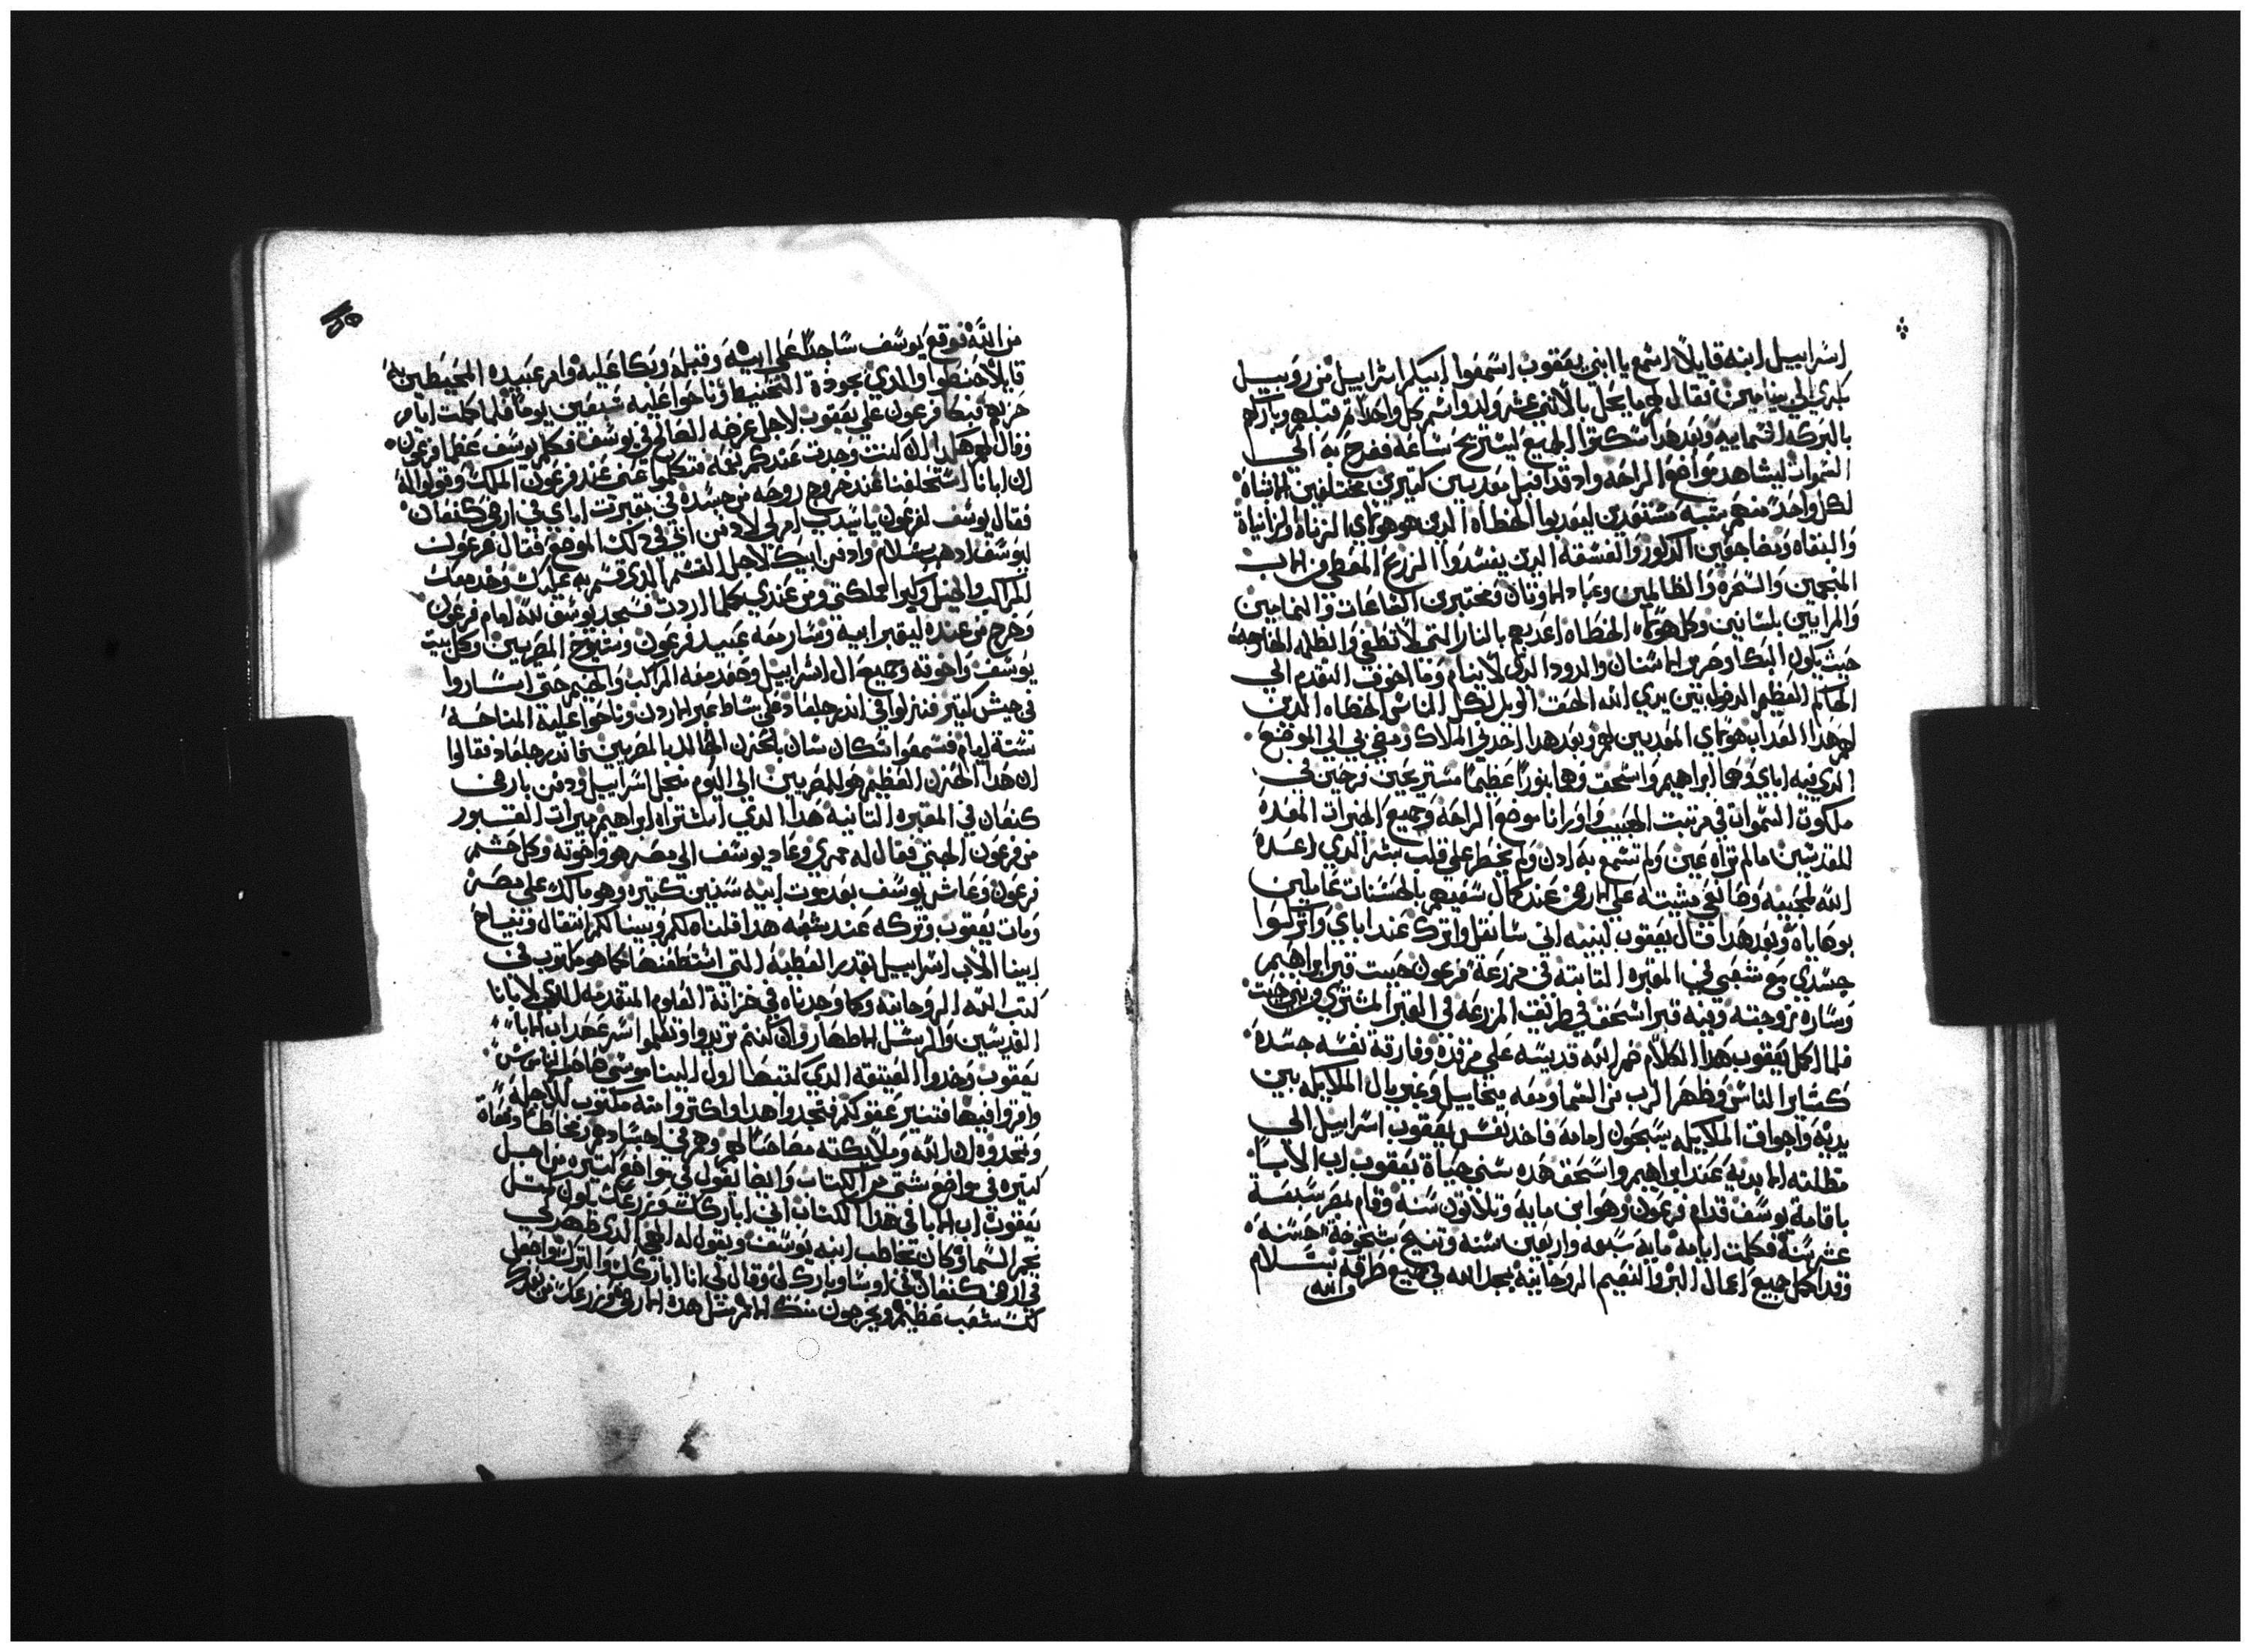 اسراييل ابنه قايلا اسمع يا ابني يعقوب اسمعوا ابيكم اسراييل من روبيل
بكري الي بنيامين فقال لهم ما يحل بالاثني عشر ولد واسم كل واحد تم قبلهم وباركهم
بالبركه السماييه وبعد هدا سكتوا الجميع ليستريح ساعه ففرح به الي
السموات ليشاهد مواضع الراحه واد قد اقبل معدبين كتيرين مختلفين
لكل واحد منهم مستعدين ليعدبوا الخطاه الدين هم هولاي الزناه والزانياه
والبغاه ومضاجعين الدكور والفسقه الدين يفسدوا الزرع المعطي من الرب
المنجمين والسحره والظالمين وعباد الاوتان والنمامين
والمرايين بلسانين وكل هولاي الخطاه اعد لهم بالنار التي لا تطفي والظلمه الخارجه
حيث يكون البكا وصرير الاسنان والدود الدي لا ينام وما اخوف التقدم الي
الحاكم العظيم الدخول بين يدي الله الحق الويل لكل الناس الخطاه الدين
لهم هدا العداب هولاي المعدبين لهم وبعد هدا اخدني الملاك ومضي بي الي الموضع
الدي فيه اباي وهما ابراهيم واسحق وهما بنورا عظيما مستريحين فرحين في
ملكوت السموات في مدينت الحبيب واورانا موضع الراحه وجميع الخيرات المعده
للمقدسين ما لم تراه عين ولم تسمع به ادن ولم يخطر علي قلب بشر الدي اعده
الله لمحبيه وصانعي مشيته علي الارض عند كمال سعيهم بالحسنات عاملين
بوصاياه وبعد هدا قال يعقوب لبنيه اني سانتقل واترك عند اباي واتركوا
جسدي مع شعبي في المقبره التانيه في مزرعة فرعون حيت قبر ابراهيم
وساره زوجته وفيه قبر اسحق في طريق المزرعه في القبر المشتري من بني حيت
فلما اكمل يعقوب هدا الكلام ضم الله قديسه علي مرقده وفارقه نفسه جسده
كساير الناس وظهر الرب من السما ومعه ميخاييل وغبريال الملايكه بين
يديه واجواق الملايكه يسبحون امامه فاخد نفس يعقوب اسراييل الي
مظلته الابديه عند ابراهيم واسحق هده سني حياة يعقوب اب الابا
باقامة يوسف قدام فرعون وهو ابن مايه وتلاتون سنه وقام بمصر سبعة
عشر سنة فكملت ايامه مايه سبعه واربعين سنه وتنيح بشيخوخه حسنه
وقد اكمل جميع اعمال البر والنعيم الروحانيه بمجد الله في جميع طرقه بسلام
والله
من الله فوقع يوسف ساجدا علي ابيه وقبله وبكا عليه وامر عبيده المحيطين به
قايلا حنطوا والدي بجودة التحنيط وناحوا عليه سبعين يوما فلما كملت ايام
حزنهم فبكا فرعون علي يعقوب لاجل غرضه الصالح في يوسف فكلم يوسف عظما فرعون
وقال لهم هكدا ان كنت وجدت عندكم نعمه فتكلموا عني عند فرعون الملك وقولوا له
ان ابانا استحلفنا عند خروج روحه من جسده في مقبرت اباي في ارض كنعان
فقال يوسف لفرعون يا سيدي امر لي لادفن ابي في دلك الموضع فقال فرعون
ليوسف ادهب بسلام وادفن ابيك لاجل القسم الدي قسم به عليك وخد معك
المراكب والخيل وكبرا مملكتي ومن عندي كلما اردت فسجد يوسف لله امام فرعون
وخرج من عنده ليقبر ابيه وسار معه عبيد فرعون وشيوخ المصريين وكل بيت
يوسف واخوته وجميع ال اسراييل وصعد معه المراكب والخيم حتي اساروا
في جيش كتير فنزلوا في اندر جلعاد علي شاط عبر الاردن وناحوا عليه المناحه
ستة ايام فسمعوا سكان بالحزن الخالد بالمصريين في اندر جلعاد فقالوا
ان هدا الحزن العظيم هو للمصريين الي اليوم من اجل اسراييل ودفن بارض
كنعان في المقبره التانيه هدا الدي اشتراه ابراهيم ميرات القبور
من فرعون الحتي فقال له ممري وعاد يوسف الي مصر هو واخوته وكل حشم
فرعون وعاش يوسف بعد موت ابيه سنين كتيره وهو مالك علي مصر
ومات يعقوب وتركه عند شعبه هدا قلناه لكم وبينا لكم انتقال وتنياح
ابينا الاب اسراييل بقدر العظيه التي استطعنا كما هو مكتوب في
كتب الله الروحانيه وكما وجدناه في خزانة العلوم المتقدمه للدي لابانا
القديسين والرسل الاطهار وان كنتم تريدوا وتعلموا اسر عهد اب الابا
يعقوب وخدوا العتيقه الدي كتبها اول الينا موسي ظاهر الناموس
واقروا فيها فتنير عقولكم فتجدوا هدا واكتر وامنه مكتوب للاجله
وتجدوه ان الله وملايكته مصاحبا لهم وهم في اجسادهم وخاطبا دفعات
كتيره في مواضع شتي من الكتاب وايضا نقول في مواضع كتيره من اجل
يعقوب اب الابا في هدا الكتاب اني ابارك كت وزرعك يكون متل
نجم السما وكان يخاطب ابنه يوسف ويقول له الهي الدي ظهر لي
في ارض كنعان في لوسا وبارك لي وقال لي انا اباركك واكترك واجعل
كت شعب عظيم ويخرجون منك امم متل هده الارض وزرعك من بعدك